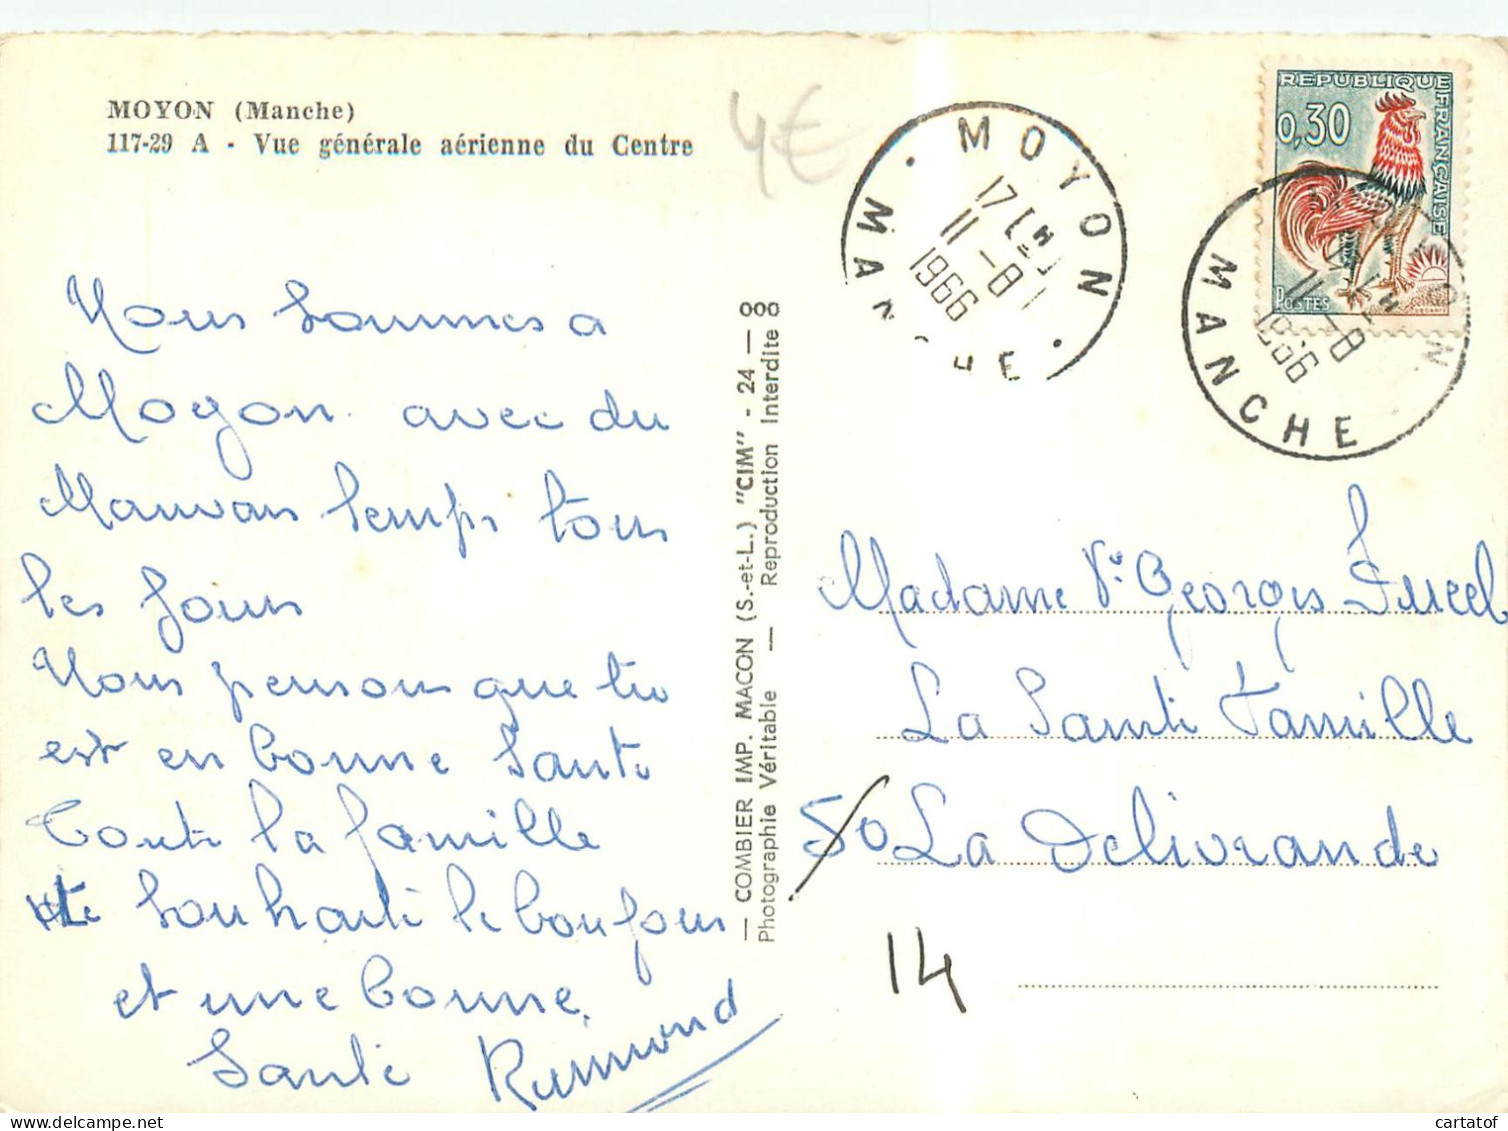 MOYON (Manche)
117-29 A - Vue générale aérienne du Centre
4€
MOYON
17H
11-8
1966
MANCHE
REPUBLIQUE FRANÇAISE
0,30
POSTES
MOYON
17H
11-8
1966
MANCHE
Nous sommes a
Moyon avec du
Mauvais temps tous
les jours
Nous pensons que tu
est en bonne Santé
Toute la famille
te souhaite le bonjour
et une bonne
Santé Raimond
— COMBIER IMP. MACON (S.-et-L.) "CIM" - 24 — 000
Photographie Véritable — Reproduction Interdite
Madame Vᵉ Georges
La Sainte Famille
50 La Delivrande
14
© cartatof